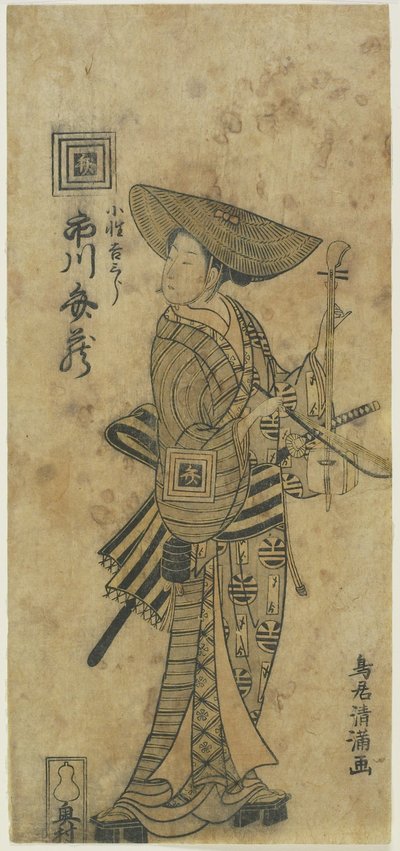 小性吉三郎
市川弁蔵
鳥居清満画
奥村